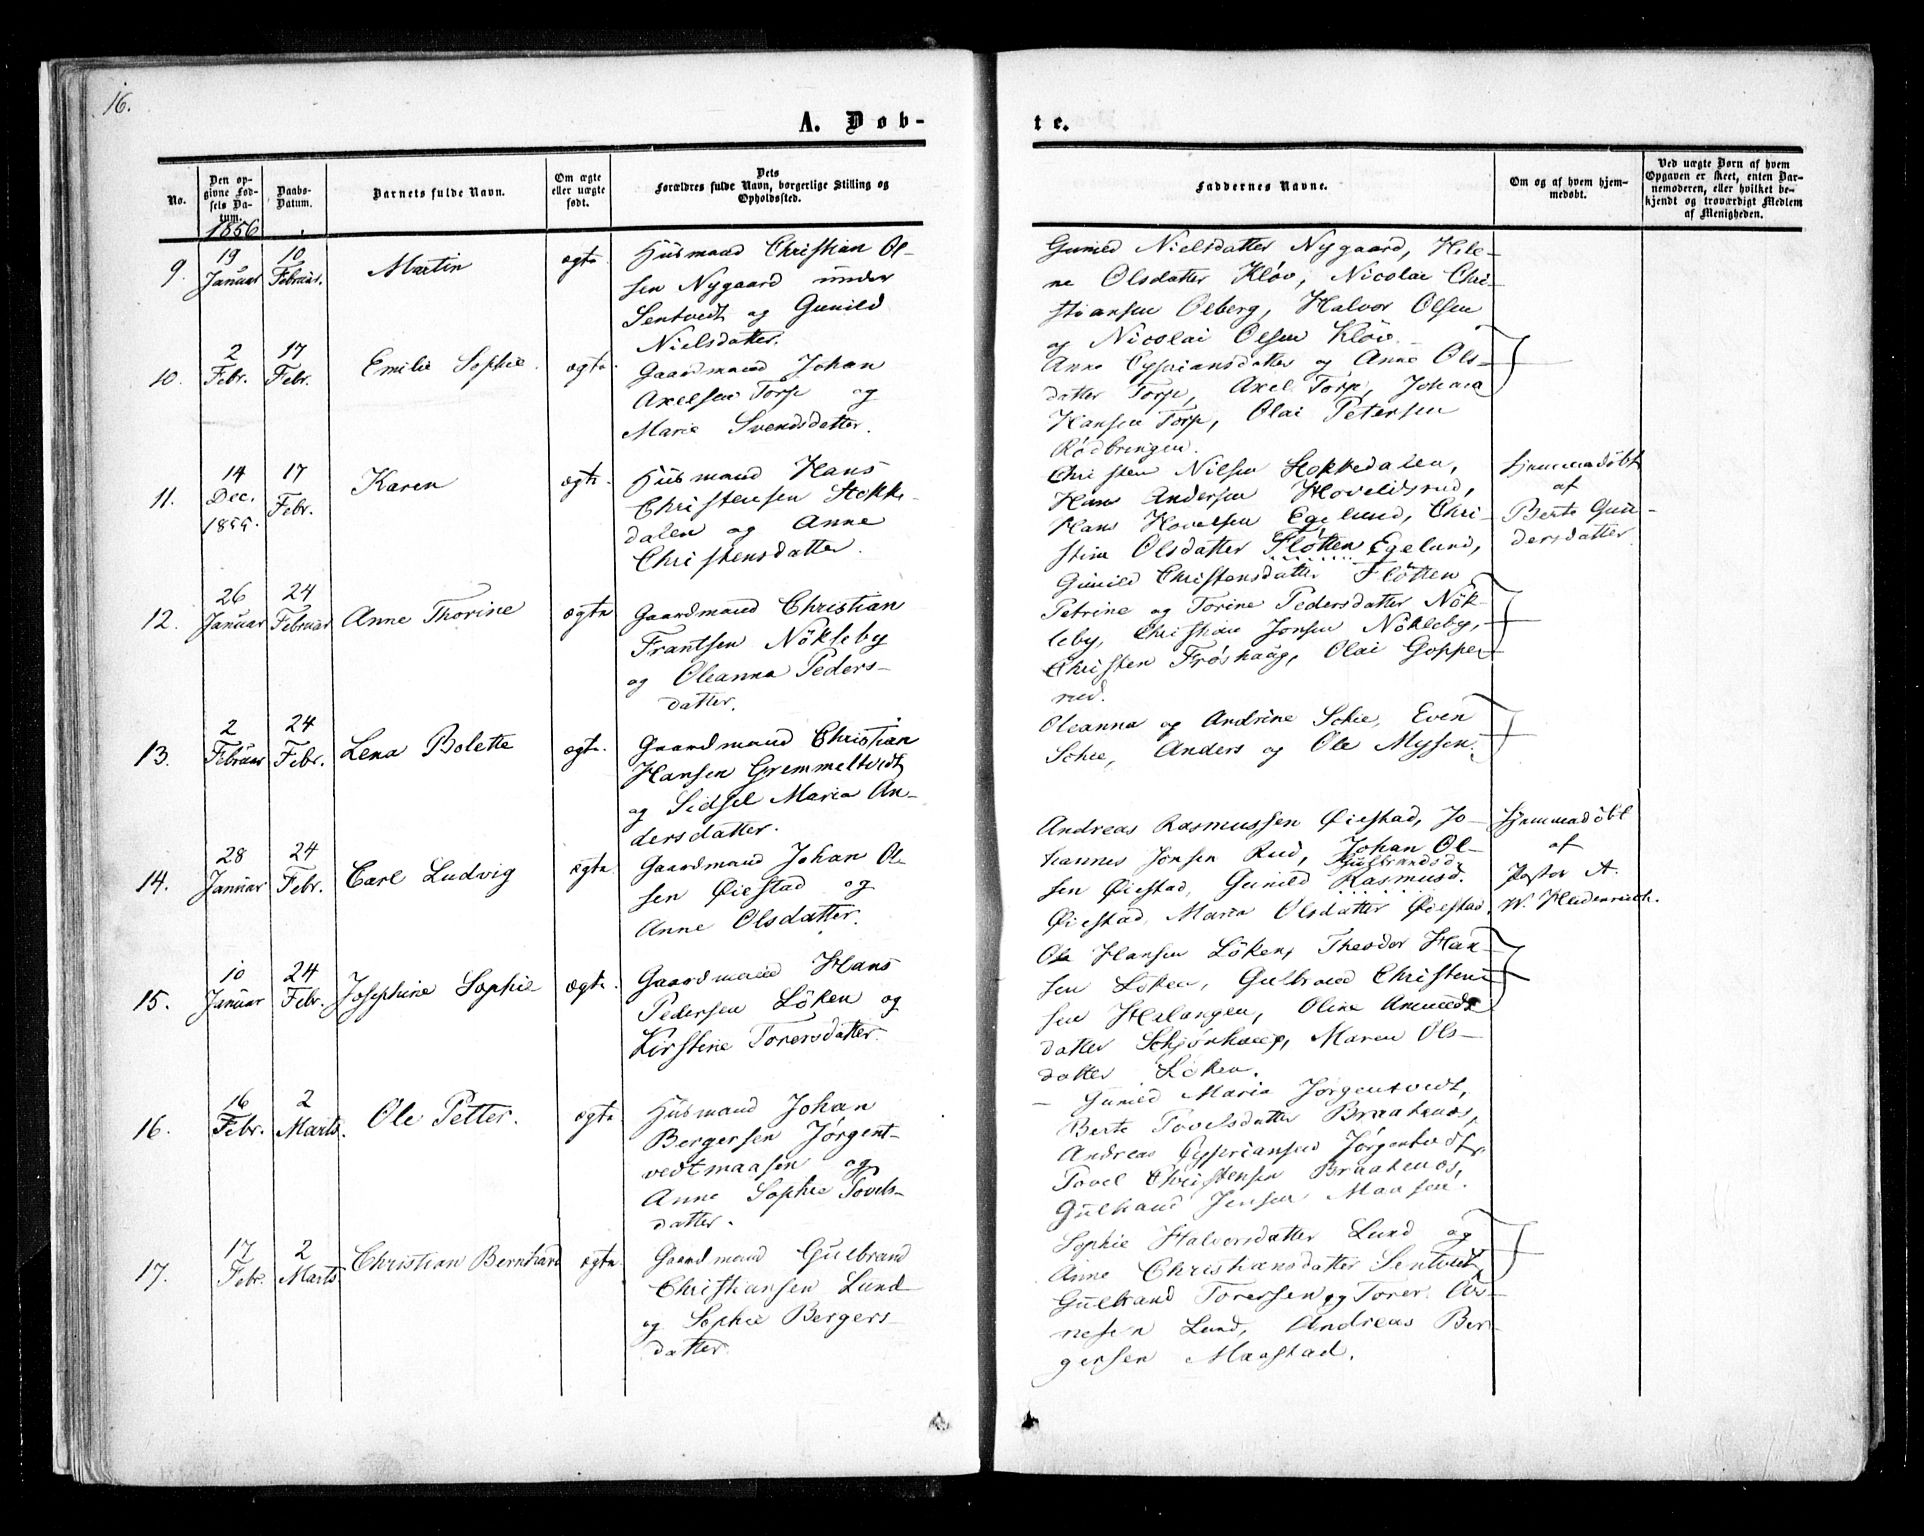 16.
A. Døb-
te.
No.
Den op-
givne Fød-
sels Da-
tum.
Daabs-
Datum.
Barnets fulde Navn.
Om ægte
eller uægte
født.
Dets
Forældres fulde Navn, borgerlige Stilling og
Opholdssted.
Faddernes Navne.
Om og af hvem hjem-
medøbt.
Ved uægte Børn af hvem
Opgaven er skeet, enten Bar-
nemoderen, eller hvilket be-
kjendt og troværdigt Medlem
af Menigheden.
1856
9.
19
Januar
10
Februar.
Martin
ægte
Huusmand Christian Ol-
sen Nygaard under
Sentvedt og Gunild
Nielsdatter.
Gunild Nielsdatter Nygaard, Hele-
ne Olsdatter Kløv, Nicolai Chri-
stiansen Oeberg, Halvor Olsen
og Nicolai Olsen Kløv.
10.
2
Febr.
17
Febr.
Emilie Sophie.
ægte.
Gaardmand Johan
Axelsen Torp og
Marie Svendsdatter.
Anne Cypriansdatter og Anne Ols-
datter Torp, Axel Torp, Johan
Hansen Torp, Olai Petersen
Rødbringen.
11.
14
Dec.
1855.
17
Febr.
Karen
ægte.
Huusmand Hans
Christensen Stokke-
dalen og Anne
Christensdatter.
Christen Nilsen Stokkedalen,
Hans Andersen Hovelsrud,
Hans Hovelsen Egelund, Chri-
stine Olsdatter Fløtten Egelund,
Gunild Christensdatter Fløtten
Hjemmedøbt
af
Berte Gun-
dersdatter
12.
26
Januar
24
Februar
Anne Thorine
ægte
Gaardmand Christian
Frantsen Nökleby
og Oleanna Peders-
datter.
Petrine og Torine Pedersdatter Nök-
leby, Christian Jonsen Nökleby,
Christen Frøshaug, Olai Goppe-
rud.
13.
2
Februar
24
Febr.
Lena Bolette
ægte.
Gaardmand Christian
Hansen Gremmeltvedt
og Sidsel Maria An-
dersdatter.
Oleanna og Andrine Schie, Even
Schie, Anders og Ole Myssen.
14.
28
Januar
24
Febr.
Carl Ludvig
ægte
Gaardmand Johan Ol-
sen Øiestad og
Anne Olsdatter.
Andreas Rasmussen Øiestad, Jo-
hannes Jonsen Rud, Johan Ol-
sen Øiestad, Gunild Rasmusd.
Gulbrandsd.
Øiestad, Maria Olsdatter Øiestad.
Hjemmedøbt
af
Pastor A.
W. Heidenreich.
15.
10
Januar
24
Febr.
Josephine Sophie
ægte.
Gaardmand Hans
Pedersen Löken og
Kirstine Torersdatter.
Ole Hansen Löken, Theodor Han-
sen Löken, Gulbrand Christen-
sen Helangen, Oline Amunds-
datter Schjørhaug, Maren Ols-
datter Löken.
16.
16
Febr.
2
Marts.
Ole Petter.
ægte
Huusmand Johan
Bergersen Jörgent-
vedtmaasen og
Anne Sophie Tovels-
datter.
Gunild Maria Jørgentvedt,
Berte Tovelsdatter Braatenæs,
Andreas Cypriansen Jørgentvedt,
Tovel Christensen Braatenæs,
Gulbrand Jensen Maasen.
17.
17
Febr.
2
Marts
Christian Bernhard
ægte
Gaardmand Gulbrand
Christiansen Lund
og Sophie Bergers-
datter
Sophie Halvorsdatter Lund og
Anne Christiansdatter Sentvedt,
Gulbrand Torersen og Torer Ar-
nesen Lund, Andreas Ber-
gersen Maastad.